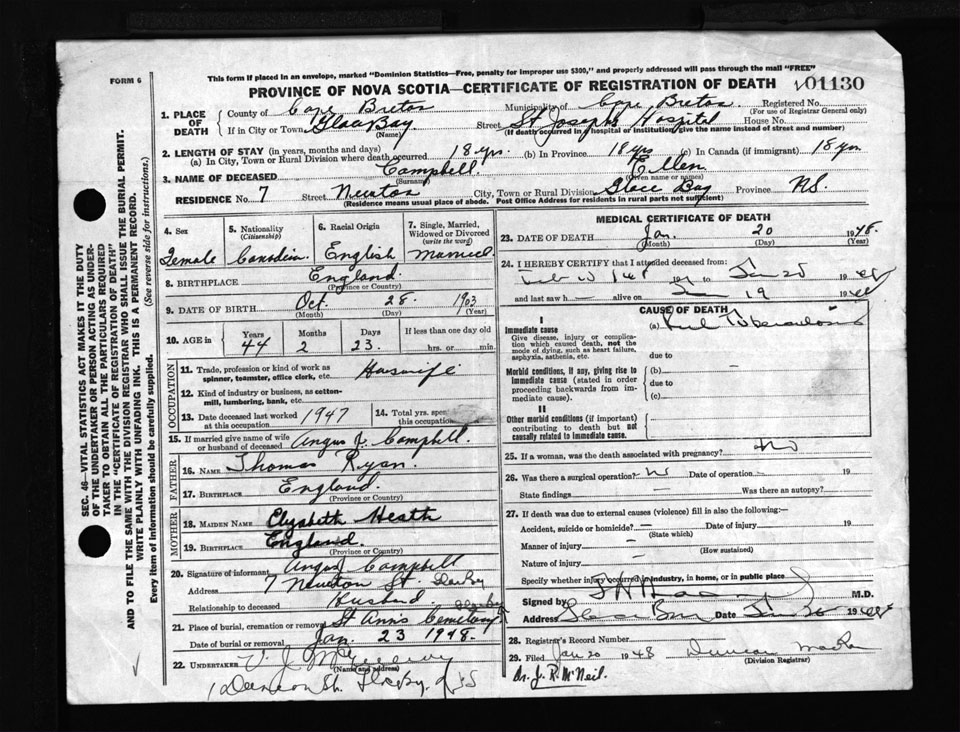 This form if placed in an envelope, marked "Dominion Statistics—Free, penalty for improper use $300," and properly addressed will pass through the mail "FREE"
FORM 6
PROVINCE OF NOVA SCOTIA—CERTIFICATE OF REGISTRATION OF DEATH
01130
SEC. 46—VITAL STATISTICS ACT MAKES IT THE DUTY
OF THE UNDERTAKER OR PERSON ACTING AS UNDER-
TAKER TO OBTAIN ALL THE PARTICULARS REQUIRED
IN THE "CERTIFICATE OF REGISTRATION OF DEATH"
AND TO FILE THE SAME WITH THE DIVISION REGISTRAR WHO SHALL ISSUE THE BURIAL PERMIT.
WRITE PLAINLY WITH UNFADING INK. THIS IS A PERMANENT RECORD.
Every item of information should be carefully supplied. (See reverse side for instructions.)
1. PLACE OF DEATH
County of Cape Breton Municipality of Cape Breton. Registered No.
(For use of Registrar General only)
If in City or Town Glace Bay Street St Josephs Hospital House No.
(Name) (If death occurred in hospital or institution, give the name instead of street and number)
2. LENGTH OF STAY (in years, months and days)
(a) In City, Town or Rural Division where death occurred 18 yrs. (b) In Province 18 yrs (c) In Canada (if immigrant) 18 yrs
3. NAME OF DECEASED Campbell. Ellen
(Surname) (Given name or names)
RESIDENCE No. 7 Street Newton City, Town or Rural Division Glace Bay Province N.S.
(Residence means usual place of abode. Post Office Address for residents in rural parts not sufficient)
4. Sex
Female
5. Nationality
(Citizenship)
Canadian
6. Racial Origin
English
7. Single, Married, Widowed or Divorced
(write the word)
Married
8. BIRTHPLACE England
(Province or Country)
9. DATE OF BIRTH Oct. 28. 1903
(Month) (Day) (Year)
10. AGE in
Years Months Days If less than one day old
44 2 23. hrs. or min.
OCCUPATION
11. Trade, profession or kind of work as
spinner, teamster, office clerk, etc. Housewife
12. Kind of industry or business, as cotton-
mill, lumbering, bank, etc.
13. Date deceased last worked
at this occupation 1947
14. Total yrs. spent
15. If married give name of wife
or husband of deceased Angus J. Campbell.
FATHER
16. NAME Thomas Ryan.
17. BIRTHPLACE England
(Province or Country)
MOTHER
18. MAIDEN NAME Elyzbeth Heath
19. BIRTHPLACE England
(Province or Country)
20. Signature of informant Angus Campbell
Address 7 Newton St.
Relationship to deceased Husband.
21. Place of burial, cremation or removal St Anns Cemetary
Date of burial or removal Jan. 23 1948.
22. UNDERTAKER V. J.
(Name and address)
MEDICAL CERTIFICATE OF DEATH
23. DATE OF DEATH Jan. 20 1948.
(Month) (Day) (Year)
24. I HEREBY CERTIFY that I attended deceased from:
to Jan 20 1948
and last saw h alive on Jan 19 1948
CAUSE OF DEATH
I
Immediate cause
Give disease, injury or complica-
tion which caused death, not the
mode of dying, such as heart failure,
asphyxia, asthenia, etc.
(a) Pul Tuberculosis
due to
Morbid conditions, if any, giving rise to
immediate cause (stated in order
proceeding backwards from im-
mediate cause).
(b) —
due to
(c)
II
Other morbid conditions (if important)
contributing to death but not
causally related to immediate cause.
25. If a woman, was the death associated with pregnancy? No
26. Was there a surgical operation? No Date of operation — 19
State findings — Was there an autopsy?
27. If death was due to external causes (violence) fill in also the following:—
Accident, suicide or homicide? — Date of injury 19
(State which)
Manner of injury —
(How sustained)
Nature of injury —
Specify whether injury occurred in industry, in home, or in public place
Signed by M.D.
Address Date Jan 20 1948
28. Registrar's Record Number
29. Filed Jan 20 1948 Duncan
(Division Registrar)
Dr. J. R. McNeil.